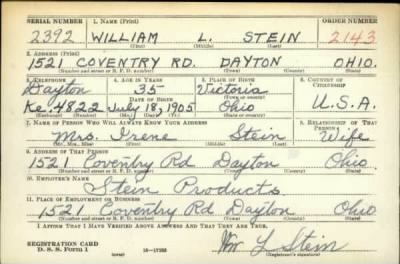 SERIAL NUMBER 1. NAME (Print) ORDER NUMBER
2392 WILLIAM L. STEIN 2143
(First) (Middle) (Last)
2. ADDRESS (Print)
1521 COVENTRY RD. DAYTON OHIO.
(Number and street or R. F. D. number) (Town) (County) (State)
3. TELEPHONE 4. AGE IN YEARS 5. PLACE OF BIRTH 6. COUNTRY OF CITIZENSHIP
Dayton 35 Victoria
DATE OF BIRTH (Town or county)
Ke. 4822 July 18, 1905 Ohio U.S.A.
(Exchange) (Number) (Mo.) (Day) (Yr.) (State or country)
7. NAME OF PERSON WHO WILL ALWAYS KNOW YOUR ADDRESS 8. RELATIONSHIP OF THAT PERSON
Mrs. Irene Stein Wife
(Mr., Mrs., Miss) (First) (Middle) (Last)
9. ADDRESS OF THAT PERSON
1521 Coventry Rd Dayton Ohio.
(Number and street or R. F. D. number) (Town) (County) (State)
10. EMPLOYER'S NAME
Stein Products
11. PLACE OF EMPLOYMENT OR BUSINESS
1521 Coventry Rd Dayton Ohio
(Number and street or R. F. D. number) (Town) (County) (State)
I AFFIRM THAT I HAVE VERIFIED ABOVE ANSWERS AND THAT THEY ARE TRUE.
REGISTRATION CARD
D. S. S. Form 1 16—17105 Wm L Stein
(Registrant's signature)